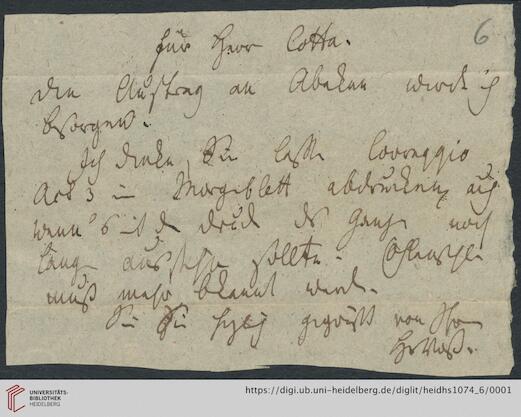 6
für Herr Cotta.
den Auftrag an Abeken werde ich
besorgen.
Ich denke, Sie lassen Correggio
Act 3 im Morgenblatt abdrucken, auch
wenn's mit dem Druck des Ganzen noch
lange aussehen sollte. Oehlenschl.
muß mehr bekannt werden.
Seien Sie herzlich gegrüßt von Ihrem
HVoß.
UNIVERSITÄTS-
BIBLIOTHEK
HEIDELBERG
https://digi.ub.uni-heidelberg.de/diglit/heidhs1074_6/0001